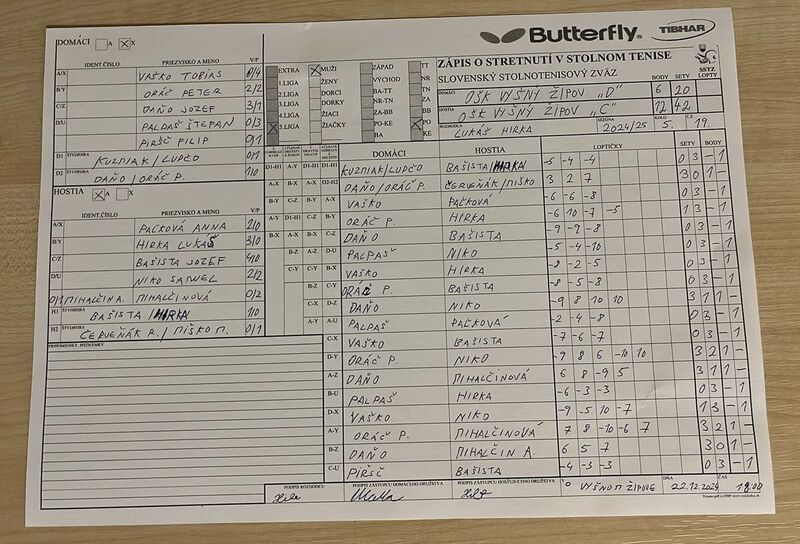 DOMÁCI A X
Butterfly
TIBHAR
IDENT.ČÍSLO PRIEZVISKO A MENO V/P
ZÁPIS O STRETNUTÍ V STOLNOM TENISE
SLOVENSKÝ STOLNOTENISOVÝ ZVÄZ
SSTZ
BODY SETY LOPTY
A/X VAŠKO TOBIAS 0/4
B/Y ORÁČ PETER 2/2
C/Z DAŇO JOZEF 3/1
D/U PALPAŠ ŠTEFAN 0/3
PIRŠČ FILIP 0/1
D1 ŠTVORHRA KUZMIAK/LUPČO 0/1
D2 ŠTVORHRA DAŇO/ORÁČ P. 1/0
EXTRA X MUŽI ZÁPAD TT
1.LIGA ŽENY VÝCHOD NR
2.LIGA DORCI BA-TT TN
3.LIGA DORKY NR-TN ZA
4.LIGA ŽIACI ZA-BB BB
X 5.LIGA ŽIAČKY PO-KE X PO
BA KE
DOMÁCI OŠK VYŠNÝ ŽIPOV "D" 6 20
HOSTIA OŠK VYŠNÝ ŽIPOV "C" 12 42
LUKÁŠ HIRKA SEZÓNA 2024/25 KOLO 5. Č. 19.
HOSTIA X X
IDENT.ČÍSLO PRIEZVISKO A MENO V/P
A/X PAČKOVÁ ANNA 2/0
B/Y HIRKA LUKÁŠ 3/0
C/Z BAŠISTA JOZEF 4/0
D/U NIKO SAMUEL 2/2
0/1 MIHALČIN A. MIHALČINOVÁ 0/2
H1 ŠTVORHRA BAŠISTA/HIRKA 1/0
H2 ŠTVORHRA ČERVEŇÁK R./MIŠKO M. 0/1
PRIPOMIENKY, POZNÁMKY
DOMÁCI HOSTIA LOPTIČKY SETY BODY
D1-H1 A-Y A-X D1-H1 D1-H1 KUZMIAK/LUPČO BAŠISTA/HIRKA -5 -4 -4 0 3 - 1
A-X B-X A-X D2-H2 DAŇO/ORÁČ P. ČERVEŇÁK/MIŠKO 3 2 7 3 0 1 -
B-Y C-Z B-Y A-X VAŠKO PAČKOVÁ -6 -6 -8 0 3 - 1
A-Y D1-H1 C-Z B-Y ORÁČ P. HIRKA -6 10 -7 -5 1 3 - 1
B-X A-X D-U C-Z DAŇO BAŠISTA -9 -9 -8 0 3 - 1
B-Z A-Z D-U PALPAŠ NIKO -5 -4 -10 0 3 - 1
C-Y B-X A-Y VAŠKO HIRKA -8 -2 -5 0 3 - 1
B-Z ORÁČ P. BAŠISTA -8 -5 -8 0 3 - 1
C-X D-Z DAŇO NIKO -9 8 10 10 3 1 1 -
A-Y A-U PALPAŠ PAČKOVÁ -2 -4 -8 0 3 - 1
C-X VAŠKO BAŠISTA -7 -6 -7 0 3 - 1
D-Y ORÁČ P. NIKO -9 8 6 -10 10 3 2 1 -
A-Z DAŇO MIHALČINOVÁ 6 8 -9 5 3 1 1 -
B-U PALPAŠ HIRKA -6 -3 -3 0 3 - 1
D-X VAŠKO NIKO -9 -5 10 -7 1 3 - 1
A-Y ORÁČ P. MIHALČINOVÁ 7 8 -10 -6 7 3 2 1 -
B-Z DAŇO MIHALČIN A. 6 5 7 3 0 1 -
C-U PIRŠČ BAŠISTA -4 -3 -3 0 3 - 1
PODPIS ROZHODCU PODPIS ZÁSTUPCU DOMÁCEHO DRUŽSTVA PODPIS ZÁSTUPCU HOSŤUJÚCEHO DRUŽSTVA VO VYŠNOM ŽIPOVE DŇA 22.12.2024 ČAS